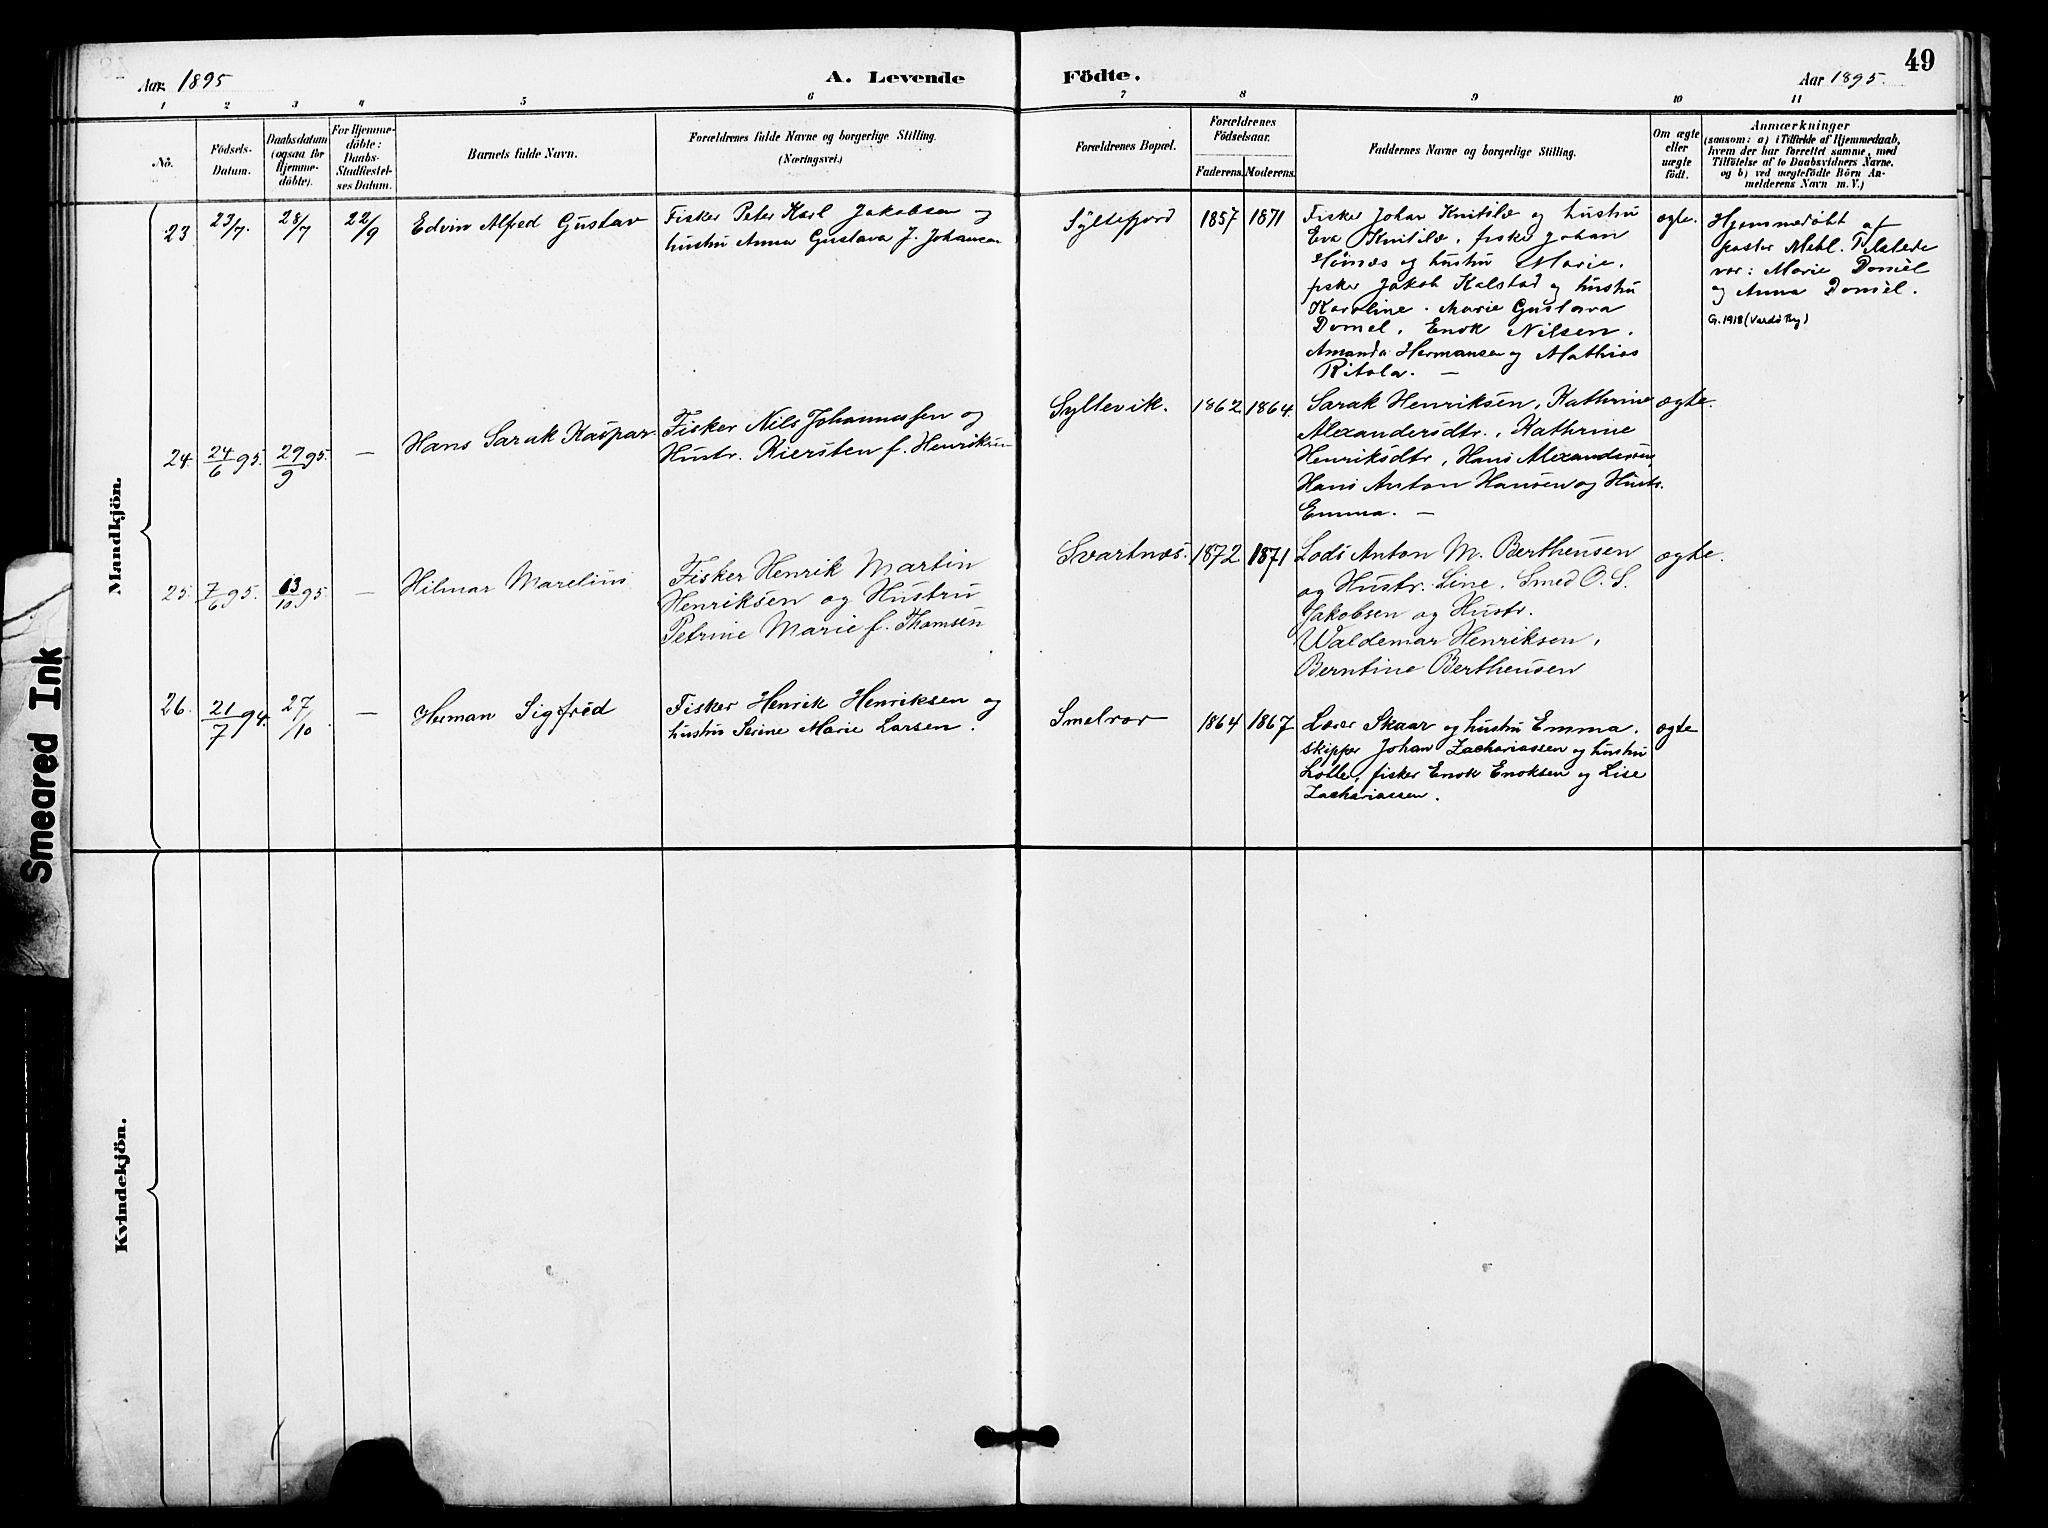 49
Aar 1895
A. Levende
Födte.
Aar 1895.
1 2 3 4 5 6 7 8 9 10 11
Nô.
Födsels-
Datum.
Daabsdatum
(ogsaa for
Hjemme-
döbte).
For Hjemme-
döbte:
Daabs-
Stadfæstel-
ses Datum.
Barnets fulde Navn.
Forældrenes fulde Navne og borgerlige Stilling.
(Næringsvei.)
Forældrenes Bopæl.
Forældrenes
Födselsaar.
Faderens.
Moderens.
Faddernes Navne og borgerlige Stilling.
Om ægte
eller
uægte
født.
Anmærkninger
(saasom: a) i Tilfælde af Hjemmedaab,
hvem der har forrettet samme, med
Tilföielse af to Daabsvidners Navne,
og b) ved uægtefödte Börn An-
melderens Navn m. V.)
Mandkjön.
23 23/7. 28/7 22/9
Edvin Alfred Gustav
Fisker Peter Karl Jakobsen og
hustru Anna Gustava J. Johansen
Syltefjord
1857 1871
Fisker Johan Knitilæ og hustru
Eva Knitilæ, fisker Johan
og hustru Marie,
fisker Jakob Kalstad og hustru
Karoline. Marie Gustava
Domel, Enok Nilsen,
Amanda Hermansen og Mathias
Ritola. —
ægte.
Hjemmedøbt af
pastor Mebl. Tilstede
var: Marie Domel
og Anna Domel.
G. 1918 (Vardö By)
24. 24/6 95. 29/9 95. —
Hans Sarak Kaspar.
Fisker Nils Johannessen og
Hustr. Kiersten f. Henriksen
Syltevik.
1862 1864.
Sarak Henriksen, Kathrine
Alexandersdtr., Kathrine
Henriksdtr, Hans Alexandersen,
Hans Anton Hansen og Hustr.
Emma. —
ægte.
25. 7/6 95. 13/10 95. —
Hilmar Marelius
Fisker Henrik Martin
Henriksen og Hustru
Petrine Marie f. Thomsen
Svartnæs.
1872 1871
Lods Anton M. Bertheusen
og Hustr. Line, Smed O. S.
Jakobsen og Hustr.
Waldemar Henriksen,
Berntine Bertheusen
ægte.
26. 21/7 94. 27/10 —
Herman Sigfrød
Fisker Henrik Henriksen og
hustru Serine Marie Larsen.
Smelror
1864 1867
Lærer Skaar og hustru Emma,
skipper Johan Zachariassen og hustru
Lotte, fisker Enok Enoksen og Lise
Zachariassen.
ægte
Kvindekjön.
Smeared Ink